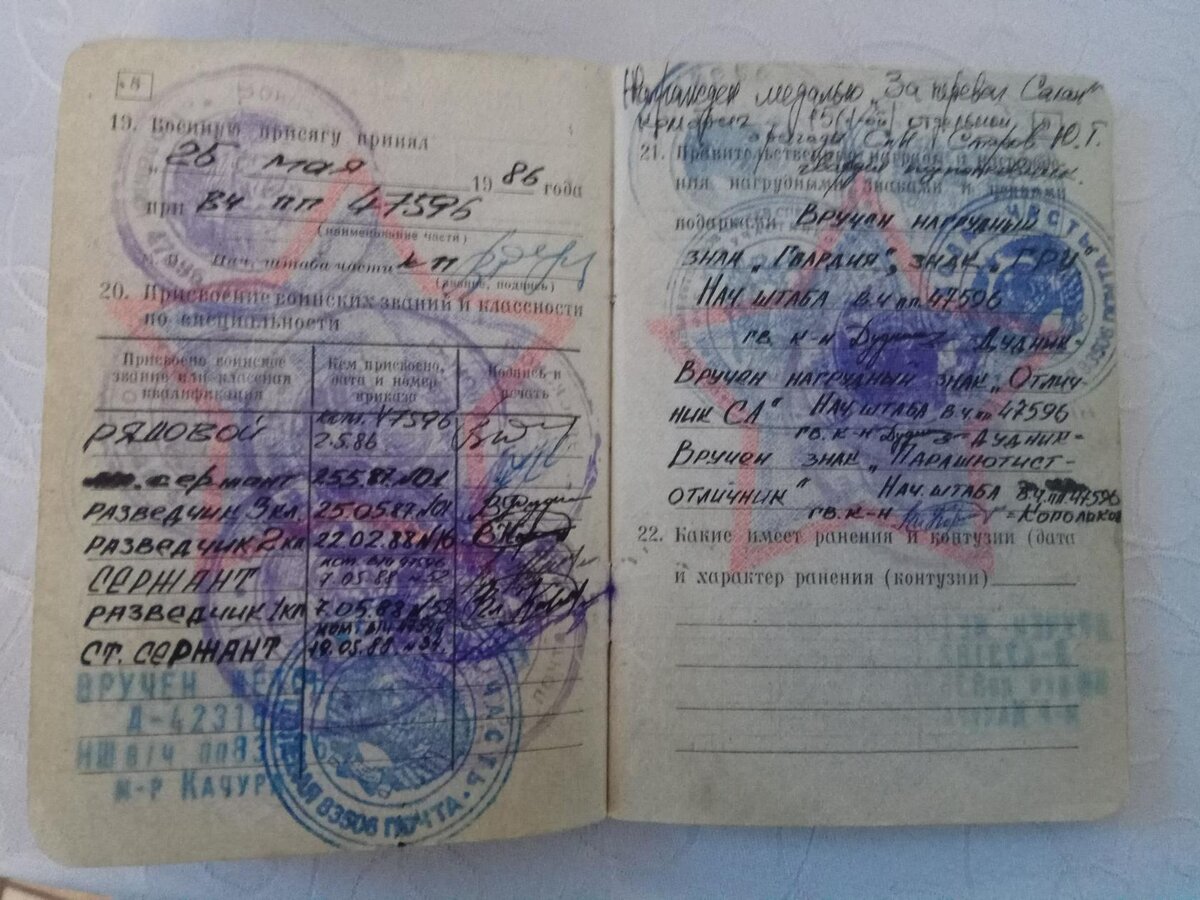 8
19. Военную присягу принял
" 25 " мая 1986 года
при ВЧ ПП 47596
(наименование части)
Нач. штаба части к-н
(звание, подпись)
20. Присвоение воинских званий и классности
по специальности
Присвоено воинское звание или классная квалификация
Кем присвоено, дата и номер приказа
Подпись и печать
РЯДОВОЙ ком. 47596 2.5.86
сержант 25.5.87. №01
РАЗВЕДЧИК 3 кл. 25.05.87. №01
РАЗВЕДЧИК 2 кл 22.02.88 №16
СЕРЖАНТ 7.05.88 №52
РАЗВЕДЧИК 1 кл 7.05.88 №52
СТ. СЕРЖАНТ 19.05.88
ВРУЧЕН
Д-4231
НШ в/ч пп83
м-р КАЧУР
ПОЛЕВАЯ ПОЧТА 83506 ЧАСТЬ
Награжден медалью „За перевал Саланг"
15 отдельной
бригады СпН Старов Ю.Т.
21. Правительственные награды и награжде-
ния нагрудными знаками и ценными
подарками Вручен нагрудный
знак „Гвардия", знак „ГРУ"
Нач. штаба в.ч пп 47596
гв. к-н Дудник
Вручен нагрудный знак „Отлич-
ник СА" Нач. штаба в.ч пп 47596
гв. к-н Дудник
Вручен знак „Парашютист-
отличник" Нач. штаба в.ч. пп 47596
гв. к-н Корольков
22. Какие имеет ранения и контузии (дата
и характер ранения (контузии)